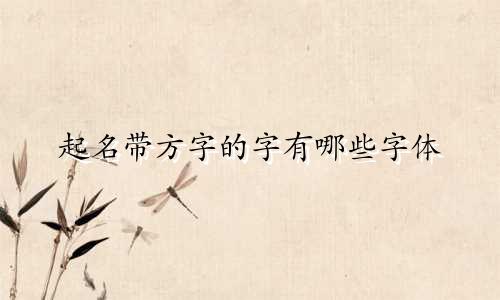 起名带方字的字有哪些字体